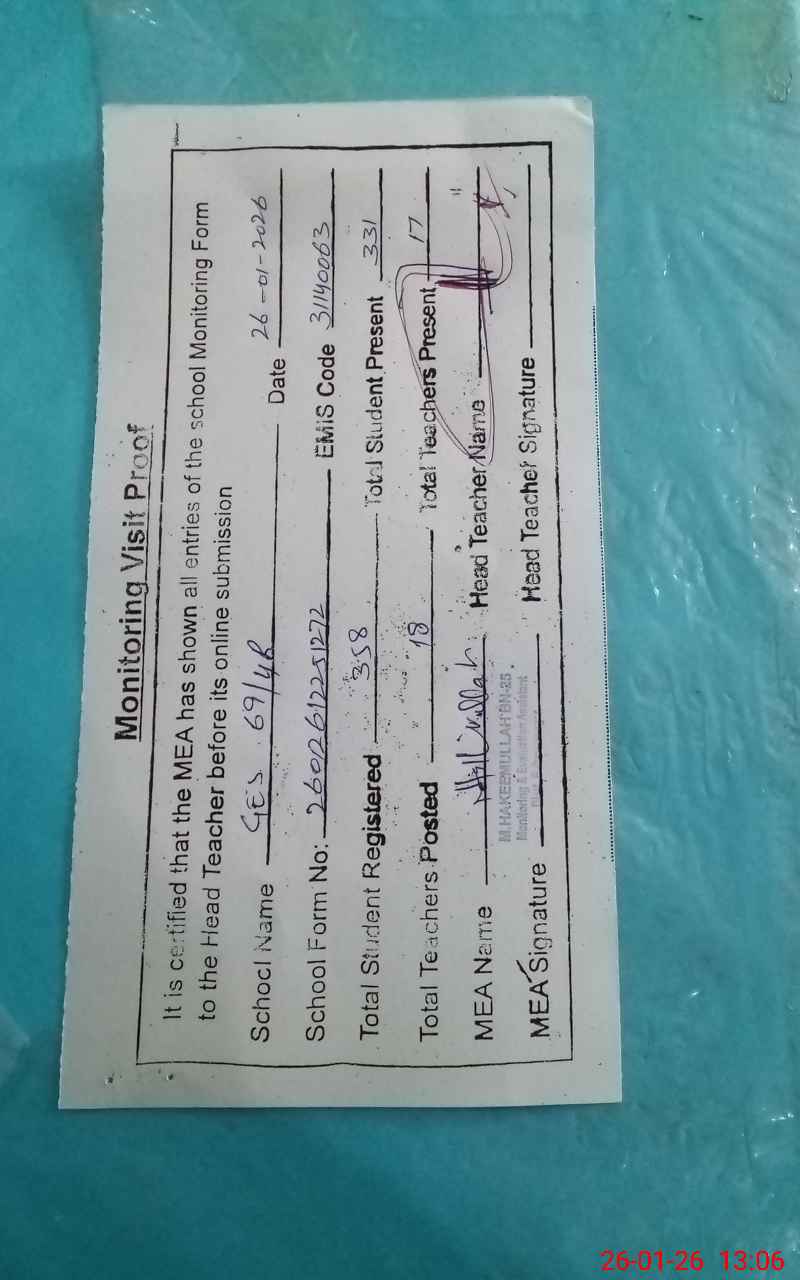 Monitoring Visit Proof
It is certified that the MEA has shown all entries of the school Monitoring Form
to the Head Teacher before its online submission
School Name GES 69/4R Date 26-01-2026
School Form No: 2601261225 1272 EMIS Code 31140063
Total Student Registered 358 Total Student Present 331
Total Teachers Posted 18 Total Teachers Present 17
MEA Name Head Teacher Name
M.HAKEEMULLAH BN-25
Monitoring & Evaluation Assistant
MEA Signature Head Teacher Signature
26-01-26 13:06